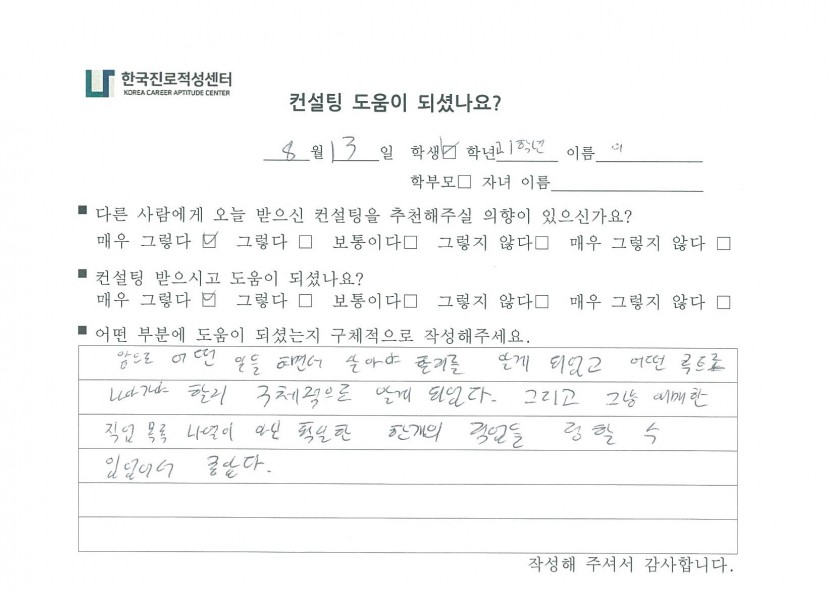 한국진로적성센터
KOREA CAREER APTITUDE CENTER
컨설팅 도움이 되셨나요?
8월 13일 학생☑ 학년 고1학년 이름
학부모□ 자녀 이름
■ 다른 사람에게 오늘 받으신 컨설팅을 추천해주실 의향이 있으신가요?
매우 그렇다 ☑ 그렇다 □ 보통이다□ 그렇지 않다□ 매우 그렇지 않다 □
■ 컨설팅 받으시고 도움이 되셨나요?
매우 그렇다 ☑ 그렇다 □ 보통이다□ 그렇지 않다□ 매우 그렇지 않다 □
■ 어떤 부분에 도움이 되셨는지 구체적으로 작성해주세요.
앞으로 어떤 일들 하면서 살아야 할지를 알게 되었고 어떤 루트로
나가야 할지 구체적으로 알게 되었다. 그리고 그냥 애매한
직업 목록 나열이 아닌 확실한 한개의 직업을 정할 수
있었어서 좋았다.
작성해 주셔서 감사합니다.